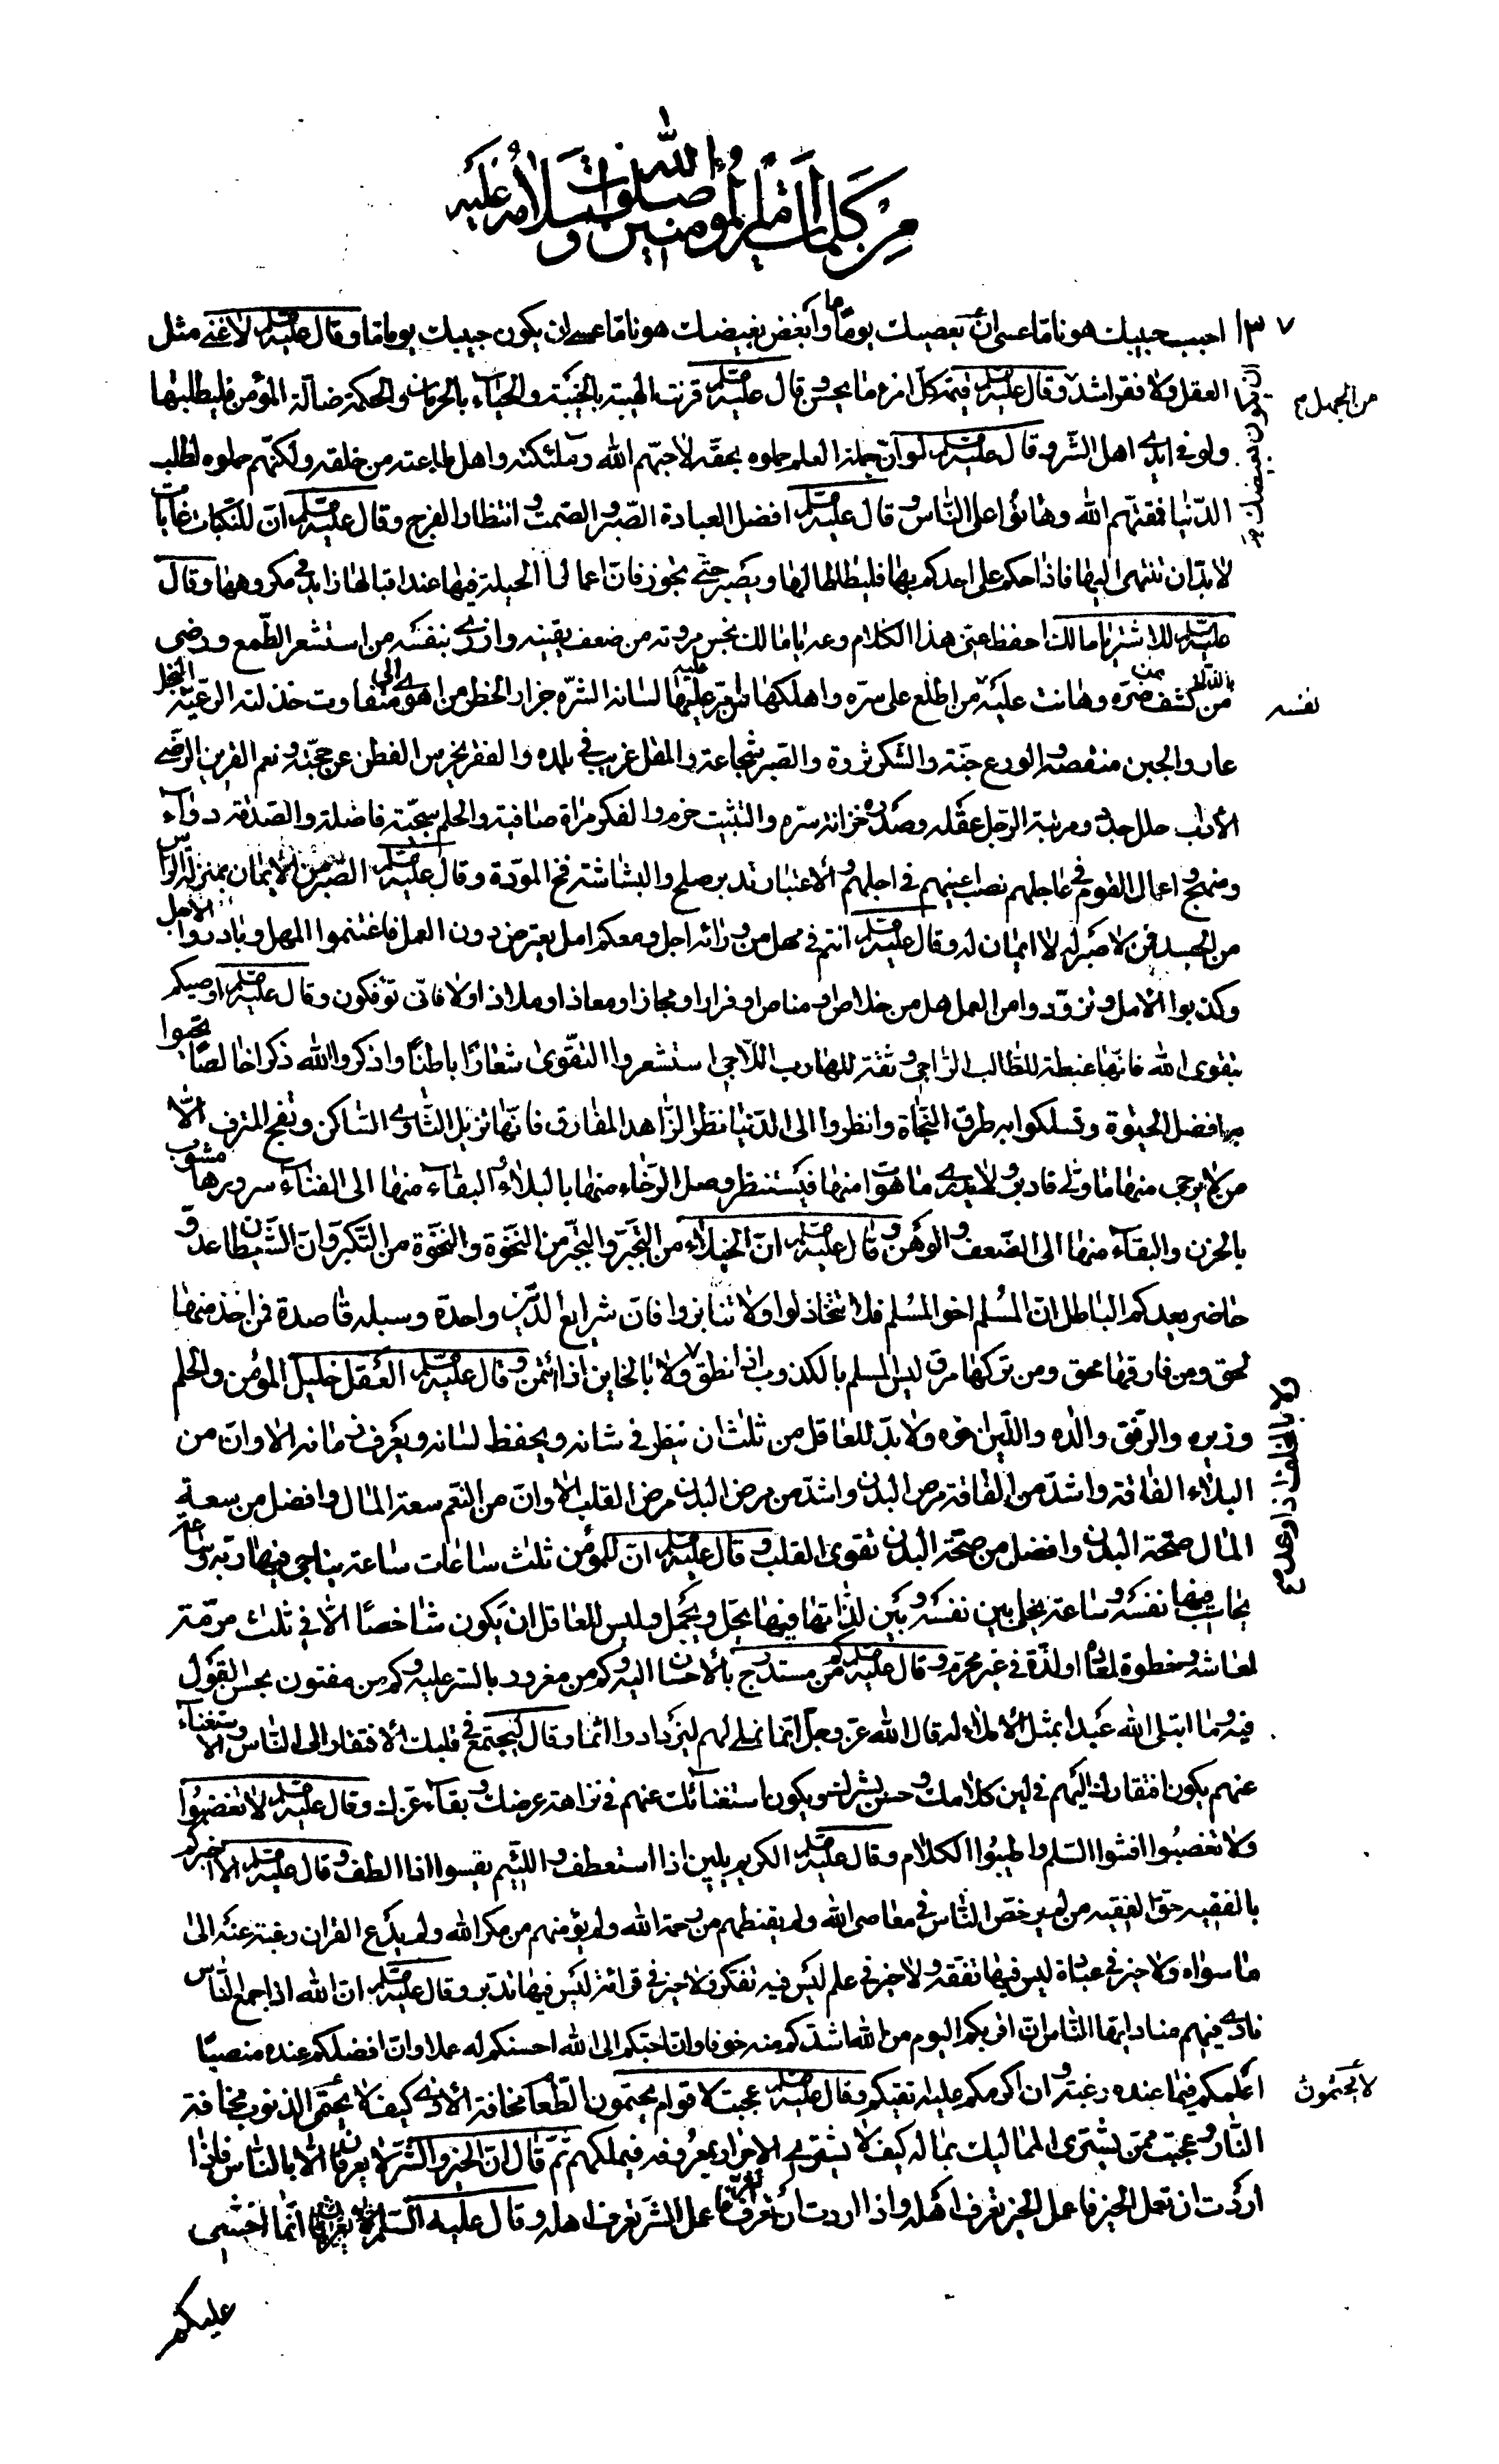 من كلمات امير المؤمنين صلوات الله و سلامه عليه
١٣٧ احبب حبيبك هونا ما عسى ان يعصيك يوما ما وابغض بغيضك هونا ما عسى ان يكون حبيبك يوما ما وقال عليه السلم لا غنى مثل
العقل ولا فقر اشد وقال عليه السلم قيمة كل امرء ما يحسن قال عليه السلم قرنت الهيبة بالخيبة والحياء بالحرمان والحكمة ضالة المؤمن فليطلبها
من الجهل
ولو في ايدى اهل الشر وقال عليه السلم لو ان حملة العلم حملوه بحقه لاحبهم الله وملئكته واهل طاعته من خلقه ولكنهم حملوه لطلب
الدنيا فمقتهم الله وهانوا على الناس وقال عليه السلم افضل العبادة الصبر والصمت وانتظار الفرج وقال عليه السلم ان للنكبات غايات
لا بد ان تنتهى اليها فاذا حكم على احدكم بها فليطاطا لها ويصبر حتى يجوز فان اعمال الحيلة فيها عند اقبالها زايد في مكروهها وقال
عليه السلم للاشتر يا مالك احفظ عنى هذا الكلام وعه يا مالك بخس مروته من ضعف يقينه وازرى بنفسه من استشعر الطمع ورضى
بالذل من كشف ضره وهانت عليه من اطلع على سره واهلكها من امر عليه لسانه الشره جزار الخطر من اهوى الى متفاوت خذلته الرغبة البخل
نفسه
عار والجبن منقصة والورع جنة والشكر ثروة والصبر شجاعة والمقل غريب في بلده والفقر يخرس الفطن عن حجته ونعم القرين الرضى
الأداب حلل جدد ومرتبة الرجل عقله وصدره خزانة سره والتثبت حزم والفكر مراة صافية والحلم سجية فاضلة والصدقة دواء
منجح واعمال القوم في عاجلهم نصب اعينهم في اجلهم والاعتبار تدبر صلح والبشاشة فخ المودة وقال عليه السلم الصبر من الايمان بمنزلة الراس
من الجسد فمن لا صبر له لا ايمان له وقال عليه السلم انتم في مهل من ورائه اجل ومعكم امل يعترض دون العمل فاغتنموا المهل وبادروا الاجل
وكذبوا الأمل وتزودوا من العمل هل من خلاص او مناص او فرار او مجاز او معاذ او ملاذ اولا فانى تؤفكون وقال عليه السلم اوصيكم
بتقوى الله فانها غبطة للطالب الراجى وثقة للهارب اللاجى استشعروا التقوى شعارا باطنا واذكروا الله ذكرا خالصا تحيوا
به افضل الحيوة وتسلكوا به طرق النجاة وانظروا الى الدنيا نظر الزاهد المفارق فانها تزيل الثاوى الساكن وتفجع المترف الآمن
لا يرجى منها ما ولى فادبر ولا يدرى ما هو ات منها فيستنظر وصل الرخاء منها بالبلاء والبقاء منها الى الفناء سرورها مشوب
بالحزن والبقاء منها الى الضعف والوهن وقال عليه السلم ان الخيلاء من التجبر والتجبر من النخوة والنخوة من التكبر وان الشيطان عدو
حاضر يعدكم الباطل ان المسلم اخو المسلم فلا تتخاذلوا ولا تنابزوا فان شرايع الدين واحدة وسبله قاصدة فمن اخذ منها
لحق ومن فارقها محق ومن تركها مرق ليس المسلم بالكذوب اذا نطق ولا بالخاين اذا ائتمن وقال عليه السلم العقل خليل المؤمن والحلم
ولا بالمخلف اذا وعد
وزيره والرفق والده واللين اخوه ولا بد للعاقل من ثلث ان ينظر في شانه ويحفظ لسانه ويعرف زمانه الا وان من
البلاء الفاقة واشد من الفاقة مرض البدن واشد من مرض البدن مرض القلب الا وان من النعم سعة المال وافضل من سعة
المال صحة البدن وافضل من صحة البدن تقوى القلب وقال عليه السلم ان للمؤمن ثلث ساعات ساعة يناجى فيها ربه وساعة
يحاسب فيها نفسه وساعة يخلى بين نفسه وبين لذاتها فيها يحل ويجمل وليس للعاقل ان يكون شاخصا الا في ثلث مرمة
لمعاشه وخطوة لمعاده او لذة في غير محرم وقال عليه السلم كم من مستدرج بالاحسان اليه وكم من مغرور بالستر عليه وكم من مفتون بحسن القول
فيه وما ابتلى الله عبدا بمثل الاملاء له قال الله عز وجل انما نملى لهم ليزدادوا اثما وقال ليجتمع في قلبك الافتقار الى الناس والاستغناء
عنهم يكون افتقارك اليهم في لين كلامك وحسن بشرك ويكون استغنائك عنهم في نزاهة عرضك وبقاء عزك وقال عليه السلم لا تغضبوا
ولا تغضبوا افشوا السلم واطيبوا الكلام وقال عليه السلم الكريم يلين اذا استعطف واللئيم يقسوا اذا الطف وقال عليه السلم الا اخبركم
بالفقيه حق الفقيه من لم يرخص الناس في معاصى الله ولم يقنطهم من رحمة الله ولم يؤمنهم من مكر الله ولم يدع القران رغبة عنه الى
ما سواه ولا خير في عبادة ليس فيها تفقه ولا خير في علم ليس فيه تفكر ولا خير في قرائة ليس فيها تدبر وقال عليه السلم ان الله اذا جمع الناس
نادى فيهم مناد ايها الناس ان اقربكم اليوم من الله اشدكم منه خوفا وان احبكم الى الله احسنكم له عملا وان افضلكم عنده منصبا
اعلمكم فيما عنده رغبة وان اكرمكم عليه اتقيكم وقال عليه السلم عجبت لاقوام يحتمون الطعام مخافة الاذى كيف لا يحتمى الذنوب مخافة
لا يحتمون
النار وعجبت ممن يشترى المماليك بماله كيف لا يشترى الاحرار بمعروفه فيملكهم ثم قال ان الخير والشر لا يعرفان الا بالناس فاذا
اردت ان تعمل الخير فاعمل الخير تعرف اهله واذا اردت ان تعرف الشر فاعمل الشر تعرف اهله وقال عليه السلم انما اخشى
عليكم